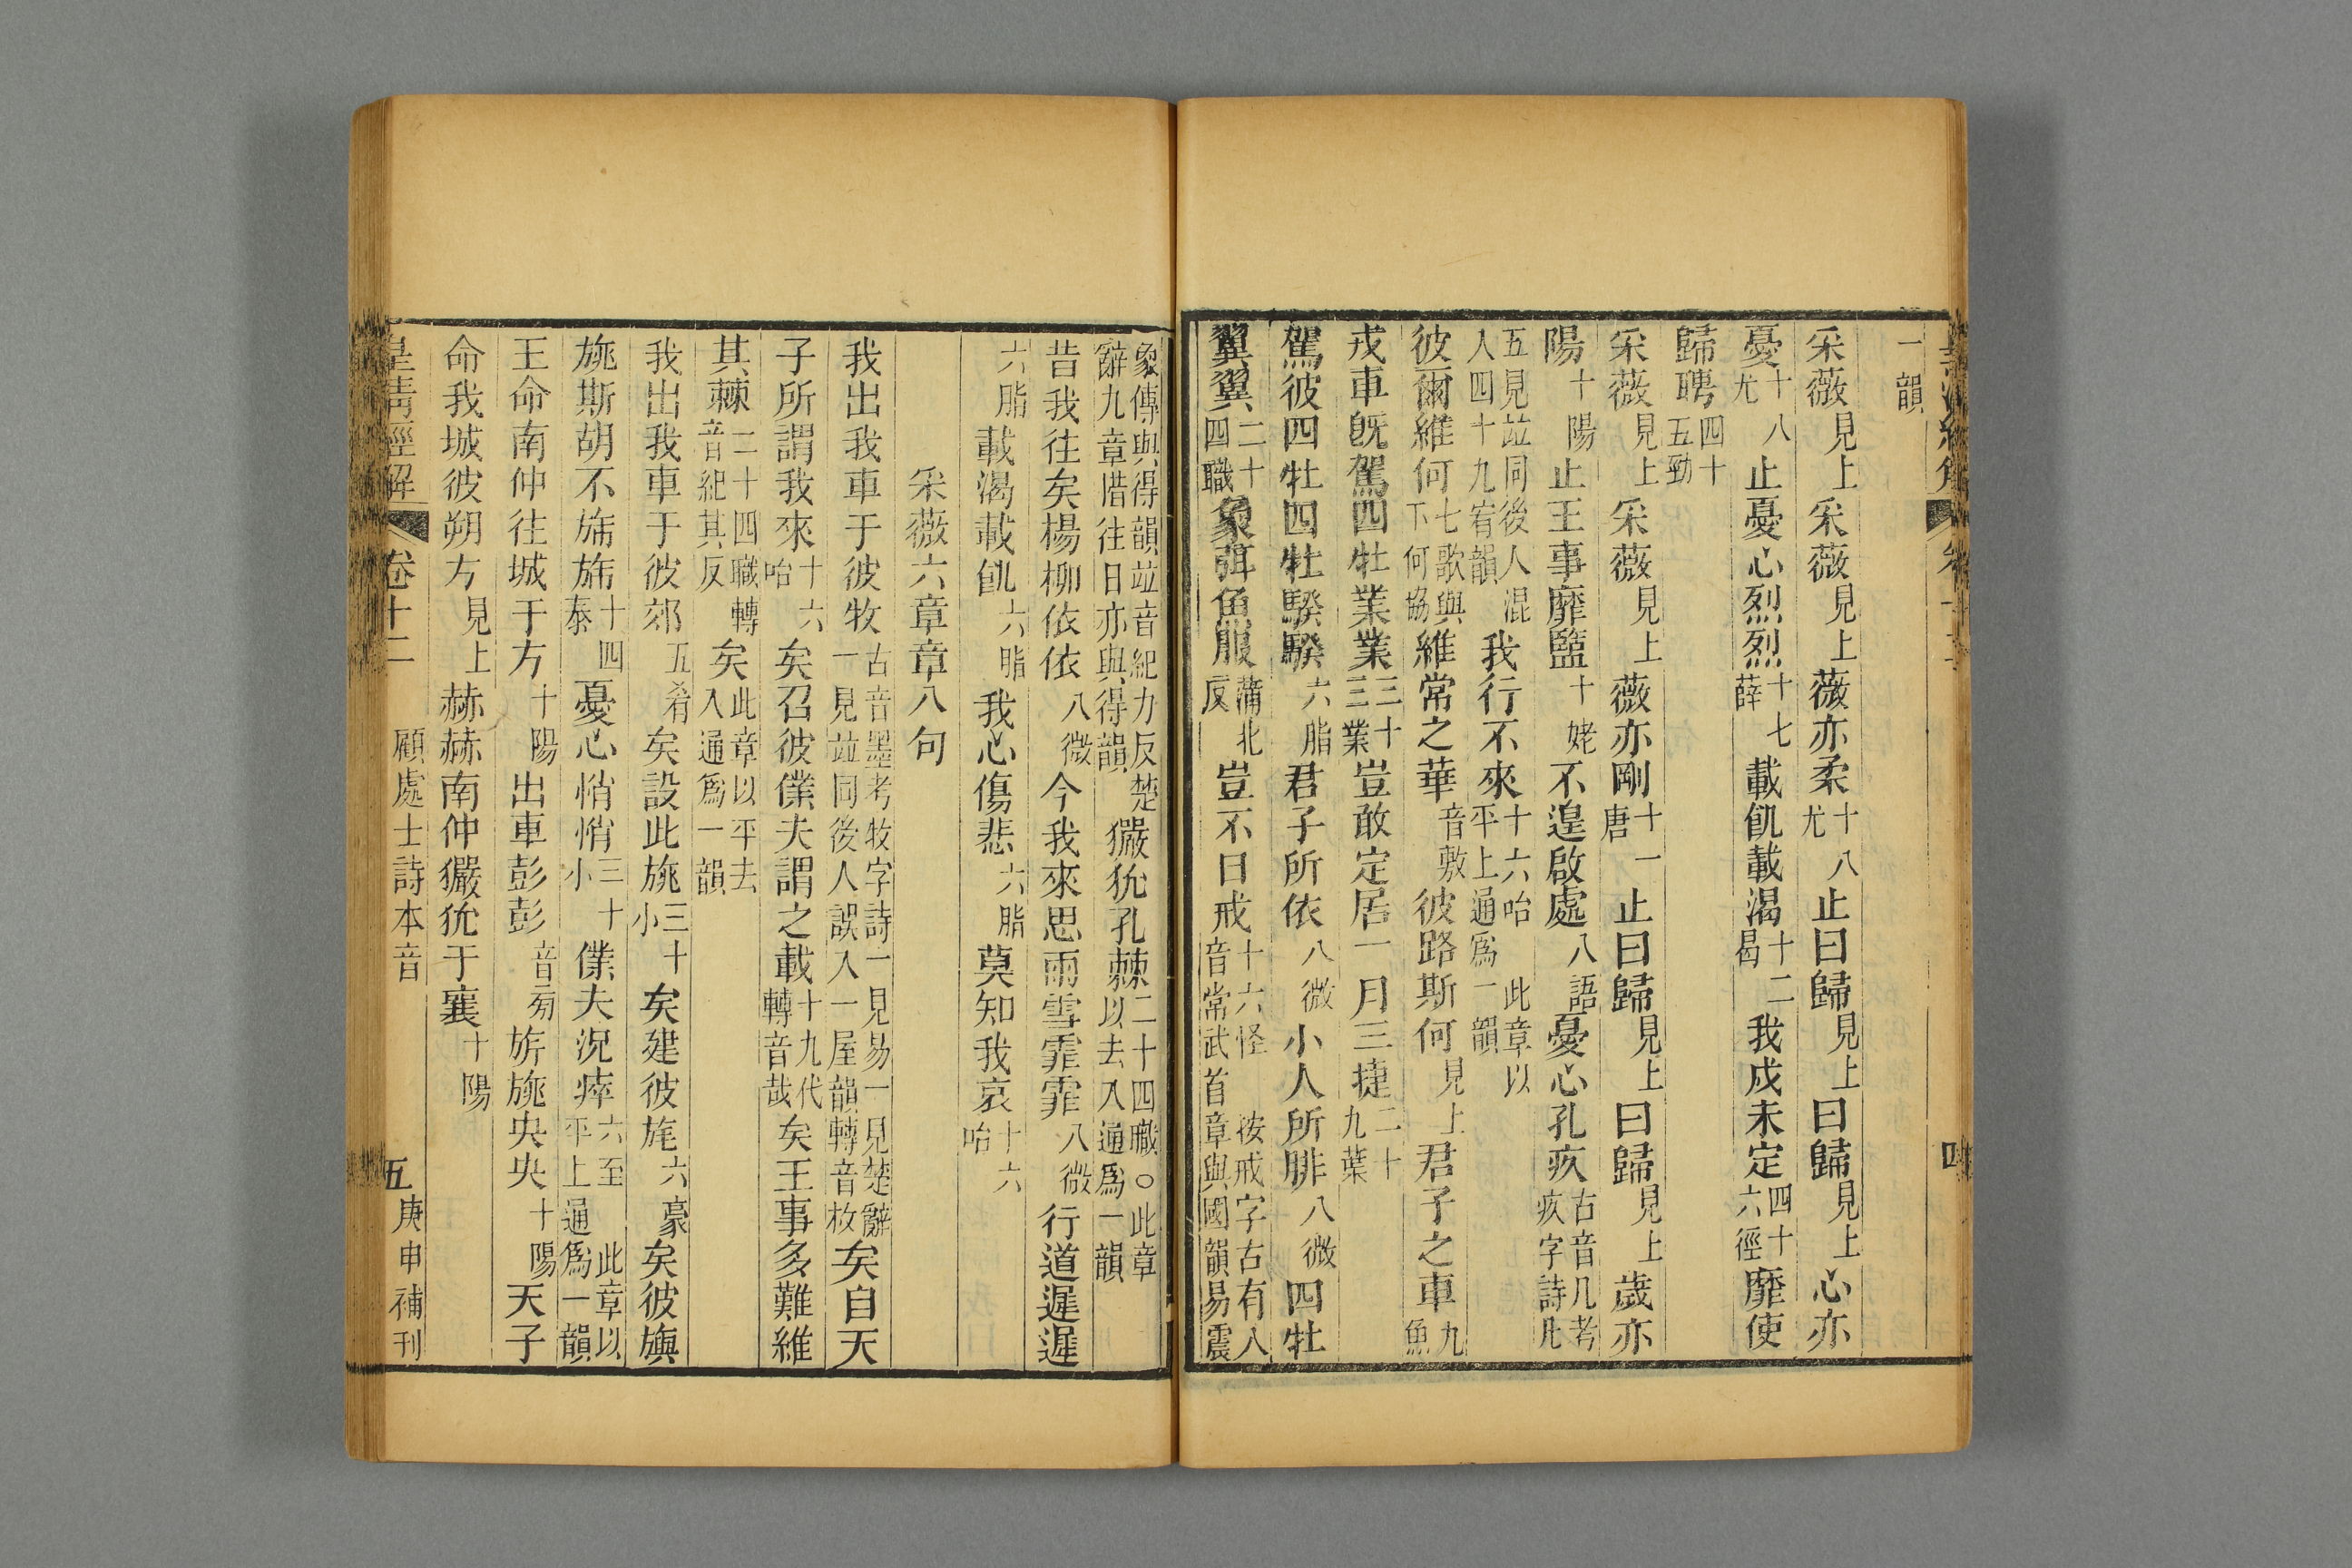 皇清經解 四
一韻
采薇見上采薇見上薇亦柔十八尤止曰歸見上曰歸見上心亦
憂十八尤止憂心烈烈十七薛載飢載渴十二曷我戍未定四十六徑靡使
歸聘四十五勁
采薇見上采薇見上薇亦剛十一唐止曰歸見上曰歸見上歲亦
陽十陽止王事靡盬十姥不遑啟處八語憂心孔疚古音几考疚字詩凡
五見竝同後人混入四十九宥韻我行不來十六咍 此章以平上通爲一韻
彼爾維何七歌與下何協維常之華音敷彼路斯何見上君子之車九魚
戎車旣駕四牡業業三十三業豈敢定居一月三捷二十九葉
駕彼四牡四牡騤騤六脂君子所依八微小人所腓八微四牡
翼翼二十四職象弭魚服蒲北反豈不日戒十六怪 按戒字古有入音常武首章與國韻易震
象傳與得韻竝音紀力反楚辭九章惜往日亦與得韻玁狁孔棘二十四職○此章以去入通爲一韻
昔我往矣楊柳依依八微今我來思雨雪霏霏八微行道遲遲
六脂載渴載飢六脂我心傷悲六脂莫知我哀十六咍
采薇六章章八句
我出我車于彼牧古音墨考牧字詩一見易一見楚辭一見竝同後人誤入一屋韻轉音枚矣自天
子所謂我來十六咍矣召彼僕夫謂之載十九代轉音哉矣王事多難維
其棘二十四職轉音紀其反矣此章以平去入通爲一韻
我出我車于彼郊五肴矣設此旐三十小矣建彼旄六豪矣彼旟
旐斯胡不旆旆十四泰憂心悄悄三十小僕夫況瘁六至 此章以平上通爲一韻
王命南仲往城于方十陽出車彭彭音旁旂旐央央十陽天子
命我城彼朔方見上赫赫南仲玁狁于襄十陽
皇清經解 卷十二 顧處士詩本音 五 庚申補刊